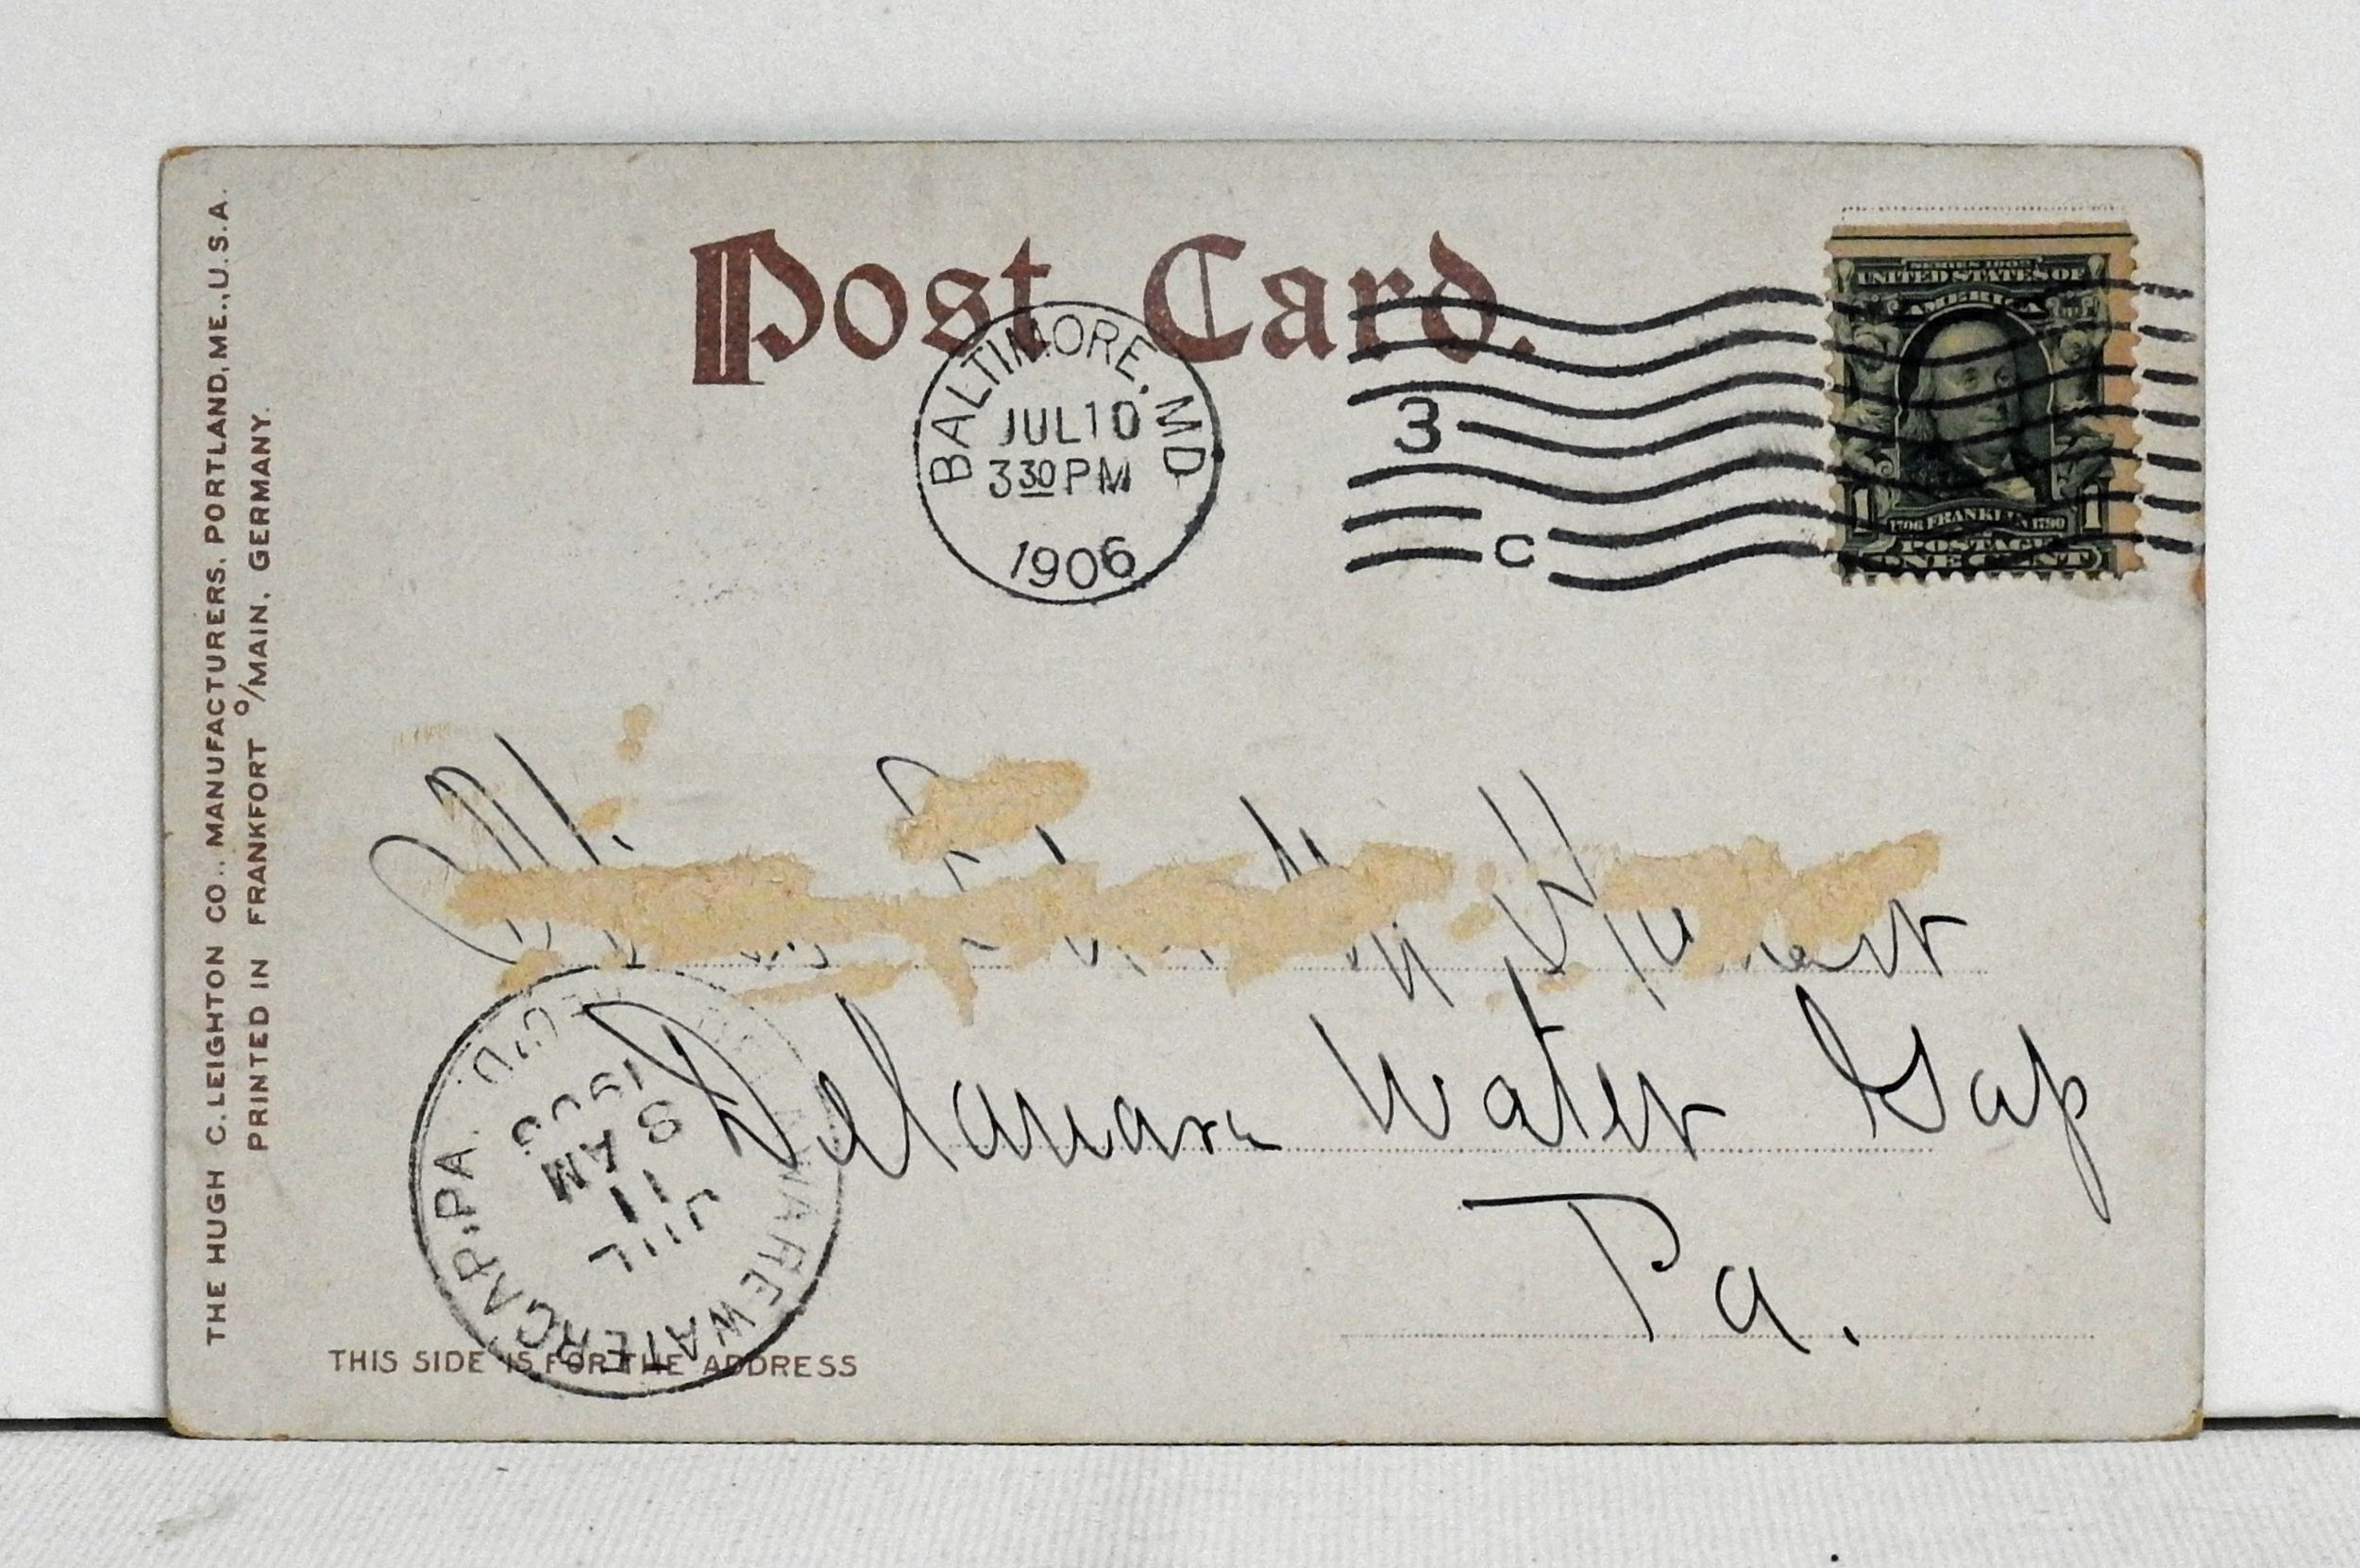 THE HUGH C. LEIGHTON CO., MANUFACTURERS, PORTLAND, ME., U.S.A.
PRINTED IN FRANKFORT o/MAIN, GERMANY.
Post Card.
BALTIMORE, MD
JUL 10
3 30 PM
1906
3
C
SERIES 1902
UNITED STATES OF
AMERICA
1706 FRANKLIN 1790
1 1
POSTAGE
ONE CENT
Delaware Water Gap
Pa.
DELAWARE WATER GAP, PA. REC'D.
JUL
11
8 AM
1906
THIS SIDE IS FOR THE ADDRESS